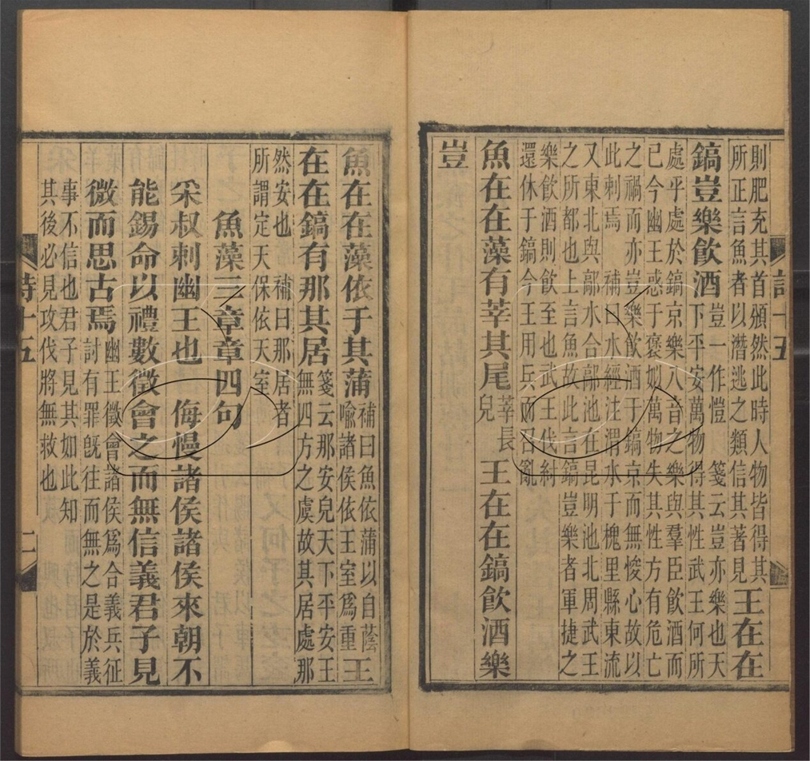 詩十五
則肥充其首頒然此時人物皆得其
所正言魚者以潛逃之類信其著見
王在在
鎬豈樂飲酒
豈一作愷 箋云豈亦樂也天
下平安萬物得其性武王何所
處乎處於鎬京樂八音之樂與羣臣飲酒而
已今幽王惑于褒姒萬物失其性方有危亡
之禍而亦豈樂飲酒于鎬京而無悛心故以
此刺焉 補曰水經注渭水于槐里縣東流
又東北與鄗水合鄗池在昆明池北周武王
之所都也上言魚故此言鎬豈樂者軍捷之
樂飲酒則飲至也武王伐紂
還休于鎬今王用兵而召亂
魚在在藻有莘其尾
莘長
兒
王在在鎬飲酒樂
豈
魚在在藻依于其蒲
補曰魚依蒲以自蔭
喻諸侯依王室爲重
王
在在鎬有那其居
箋云那安兒天下平安王
無四方之虞故其居處那
然安也 補曰那居者
所謂定天保依天室
魚藻三章章四句
采叔刺幽王也 侮慢諸侯諸侯來朝不
能錫命以禮數徵會之而無信義君子見
微而思古焉
幽王徵會諸侯爲合義兵征
討有罪旣往而無之是於義
事不信也君子見其如此知
其後必見攻伐將無救也
詩十五
二